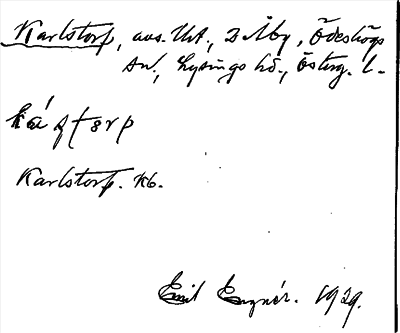 Karlstorp, avs. Utt., D. Åby, Ödeshögs
sn., Lysings hd., Östergl. l.
ká ʂ t s r p
Karlstorp. Kb.
Emil Engnér. 1929.